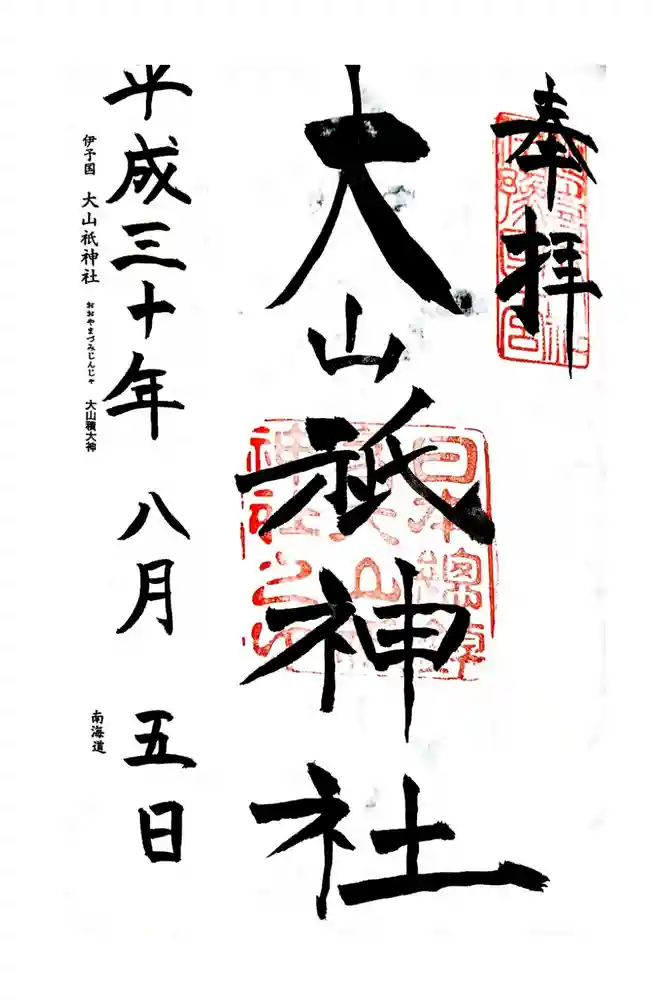 奉拝
大山祇神社
平成三十年 八月 五日
伊予国 大山祇神社 おおやまづみじんじゃ 大山積大神
南海道